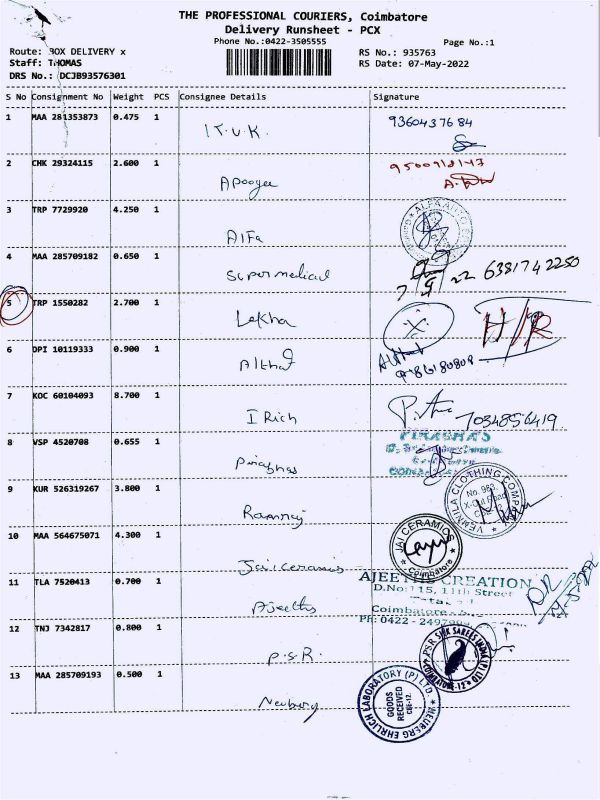 THE PROFESSIONAL COURIERS, Coimbatore
Delivery Runsheet - PCX
Phone No.:0422-3505555
Page No.:1
Route: BOX DELIVERY x
Staff: THOMAS
DRS No.: DCJB93576301
RS No.: 935763
RS Date: 07-May-2022
S No Consignment No Weight PCS Consignee Details Signature
1 MAA 281353873 0.475 1 I T. U. K. 9360437684
2 CHK 29324115 2.600 1 Apoogee
3 TRP 7729920 4.250 1 Alfa
4 MAA 285709182 0.650 1 Supermedical 7/5/22 6381742250
5 TRP 1550282 2.700 1 Lekha H/R
6 DPI 10119333 0.900 1 Althaf
7 KOC 60104093 8.700 1 I Rich 7034856419
8 VSP 4520708 0.655 1
9 KUR 526319267 3.800 1 Ramraj
VENKILA CLOTHING COMPANY
No. 983,
10 MAA 564675071 4.300 1 Jai ceramis
JAI CERAMICS
Coimbatore
11 TLA 7520413 0.700 1 Ajeeths
AJEETHS CREATION
D.No:115, 11th Street
Coimbatore
12 TNJ 7342817 0.800 1 P.S.R.
PSR SILK SAREES INDIA (P) LTD
COIMBATORE-12
13 MAA 285709193 0.500 1 Neuberg
NEUBERG EHRLICH LABORATORY (P) LTD
GOODS
RECEIVED
CBE-12.